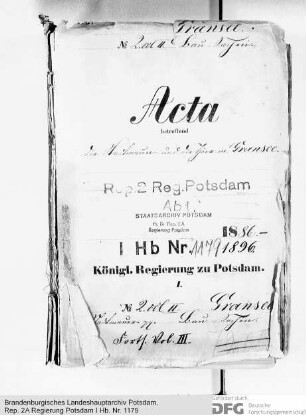 Gransee.
№ 2
Acta
betreffend
die Stadtmauer und die Thore in Gransee.
Rep. 2 Reg. Potsdam
Abt.
STAATSARCHIV POTSDAM
Pr. Br. Rep. 2 A
Regierung Potsdam
1886-
I Hb Nr. 1179 1896
Königl. Regierung zu Potsdam.
I.
№ II Gransee
Forts. Vol. III.
Brandenburgisches Landeshauptarchiv Potsdam,
Rep. 2A Regierung Potsdam I Hb. Nr. 1179
Gefördert durch
DFG Deutsche
Forschungsgemeinschaft